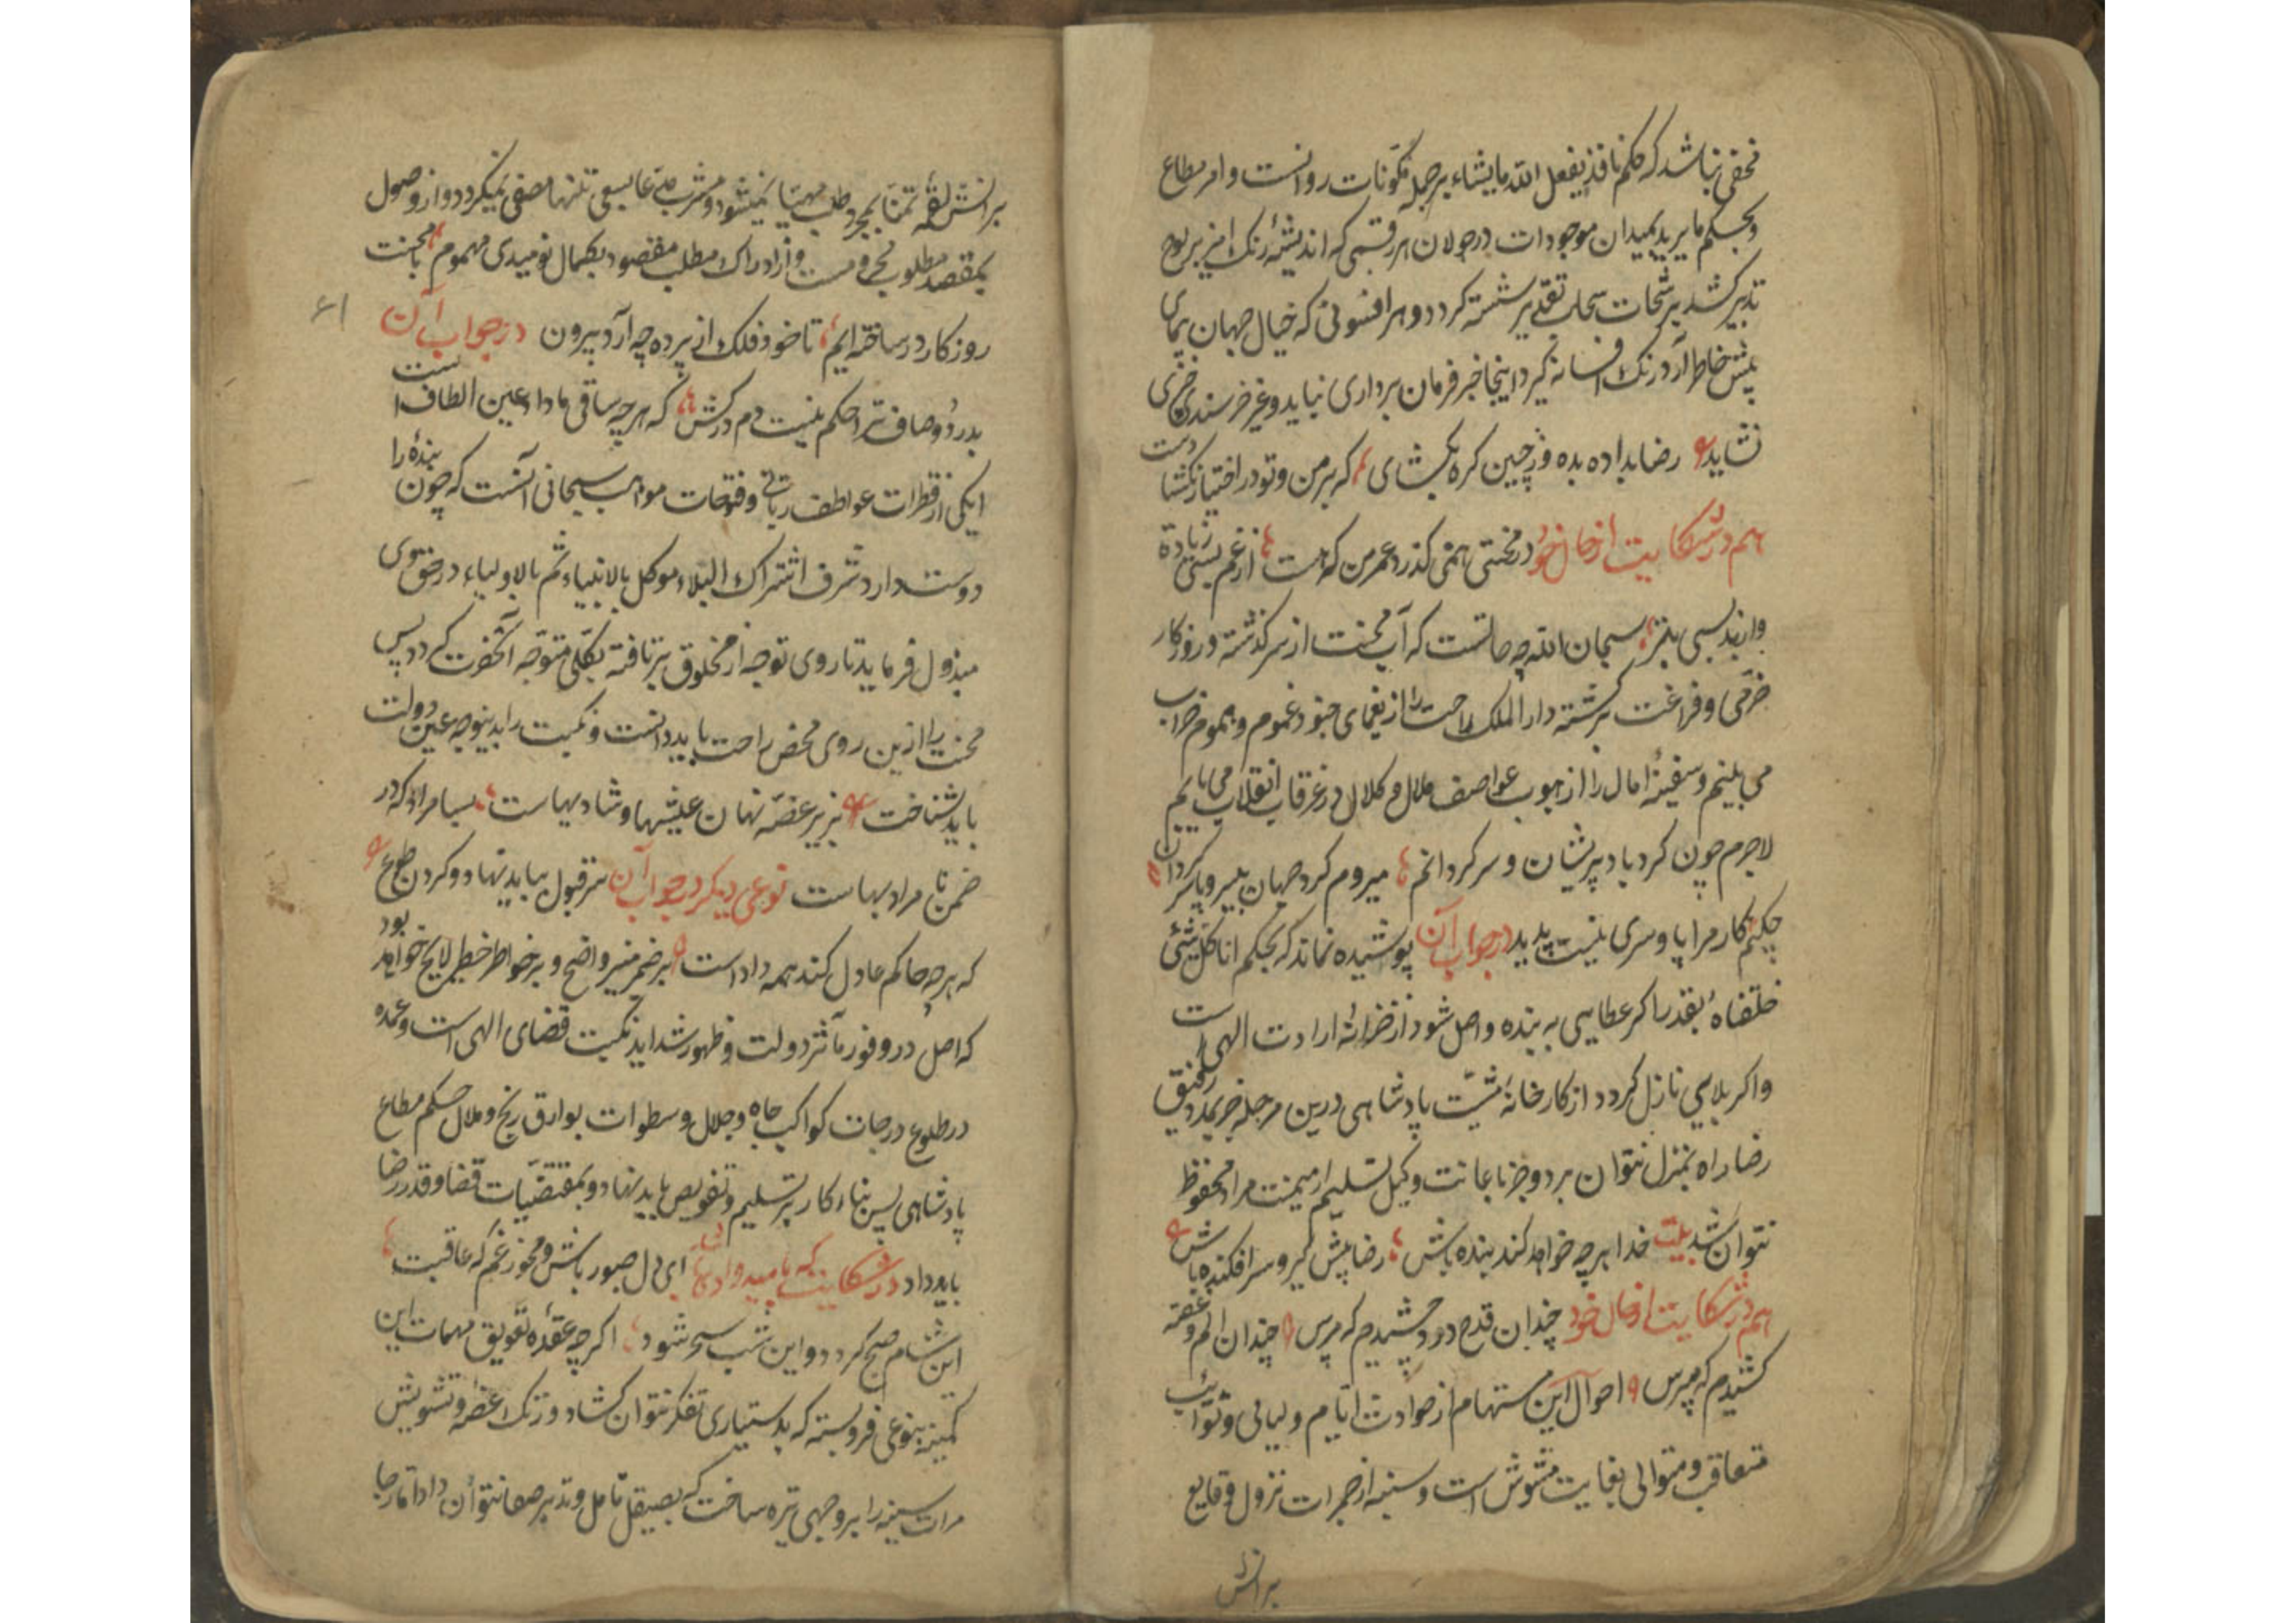 مخفی نباشد که حکم نافذ یفعل الله مایشاء بر جمله مکونات روانست و امر مطاع
و یحکم مایرید بمیدان موجودات در جولان هر رقمی که اندیشهٔ رنک امیز بر لوح
تدبیر کشد برشحات سحاب تقدیر شسته کردد و هر افسونی که خیال جهان پیمای
پیش خاطر آرد رنک افسانه کیرد اینجا جز فرمان برداری نباید و غیر خرسندی چیزی
نشاید رضا بداده بده وز جبین کره بکشای که بر من و تو در اختیار نکشا دست
هم در شکایت از حال خود در محنتی همی کذرد عمر من که هست از غم بسی زیاده
و از بد بسی بتر سبحان الله چه حالتست که آب محنت از سر کذشته و روزکار
خرمی و فراغت برکشته دار الملک راحت را از یغمای جنود غموم و هموم خراب
می بینیم و سفینهٔ امال را از هبوب عواصف ملال و کلال در غرقاب انقلاب می یابیم
لاجرم چون کرد باد پریشان و سر کردانم میروم کرد جهان بی سر و پا سر کردان
چکنم کار مرا پا و سری نیست پدید در جواب آن پوشیده نماند که بحکم انا کل شیئ
خلقناه بقدر اکر عطایی به بنده واصل شود از خزانهٔ ارادت الهی است
و اکر بلایی نازل کردد از کارخانهٔ مشیت پادشاهی درین مرحله جز بمدد رفیق
رضا راه بمنزل نتوان برد و جز باعانت وکیل تسلیم از میمنت مراد محفوظ
نتوان شد بیت خدا هر چه خواهد کند بنده باش رضا پیش کیر و سر افکنده باش
هم در شکایت از حال خود چندان قدح درد چشیدم که مپرس چندان الم و غصه
کشیدم که مپرس احوال این مستهام از حوادث ایام و لیالی و نوائب
متعاقب و متوالی بغایت مشوش است و سینه از جمرات نزول وقایع
برآتش
برآتش لقمهٔ تمنا بمجرد طلب مهیا نمیشود و مشرب مدعا بسعی تنها مصفی نمیکردد و از وصول
بمقصد مطلوب محرومست و از ادراک مطلب مقصود بکمال نومیدی مهموم با محنت
۶۱
روزکار در ساخته ایم تا خود فلک از پرده چه آرد بیرون در جواب آن
بدرد و صاف ترا حکم نیست دم درکش که هر چه ساقی ما داد عین الطاف است
ایکی از قطرات عواطف ربانی و فتوحات مواهب سبحانی آنست که چون بنده را
دوست دارد شرف اشتراک البلاء موکل بالانبیاء ثم بالاولیاء در حق وی
مبذول فرماید تا روی توجه از مخلوق برتافته بکلی متوجه آنحضرت کردد پس
محنت را ازین روی محض راحت باید دانست و نکبت را بدینوجه عین دولت
باید شناخت بزیر غصه نهان عیشها و شادیهاست بسا مراد که در
ضمن نا مرادیهاست نوعی دیکر در جواب آن سر قبول بباید نهاد و کردن طوع
که هر چه حاکم عادل کند همه داد است بر ضمیر منیر واضح و بر خواطر خطیر لایح خواهد بود
که اصل در وفور مآثر دولت و ظهور شداید نکبت قضای الهی است و عمده
در طلوع درجات کواکب جاه و جلال و سطوات بوارق رنج و ملال حکم مطاع
پادشاهی پس بناء کار بر تسلیم و تفویض باید نهاد و بمقتضیات قضا و قدر رضا
باید داد در شکایت که بامیدواری باشد ای دل صبور باش و مخور غم که عاقبت
این شام صبح کردد و این شب سحر شود اکر چه عقدهٔ تعویق مهمات این
کمینه بنوعی فروبسته که بدستیاری تفکر نتوان کشاد و زنک غصه و تشویش
مرات سینه را بر وجهی تیره ساخت که بصیقل تامل و تدبر صفا نتوان داد اما رجا